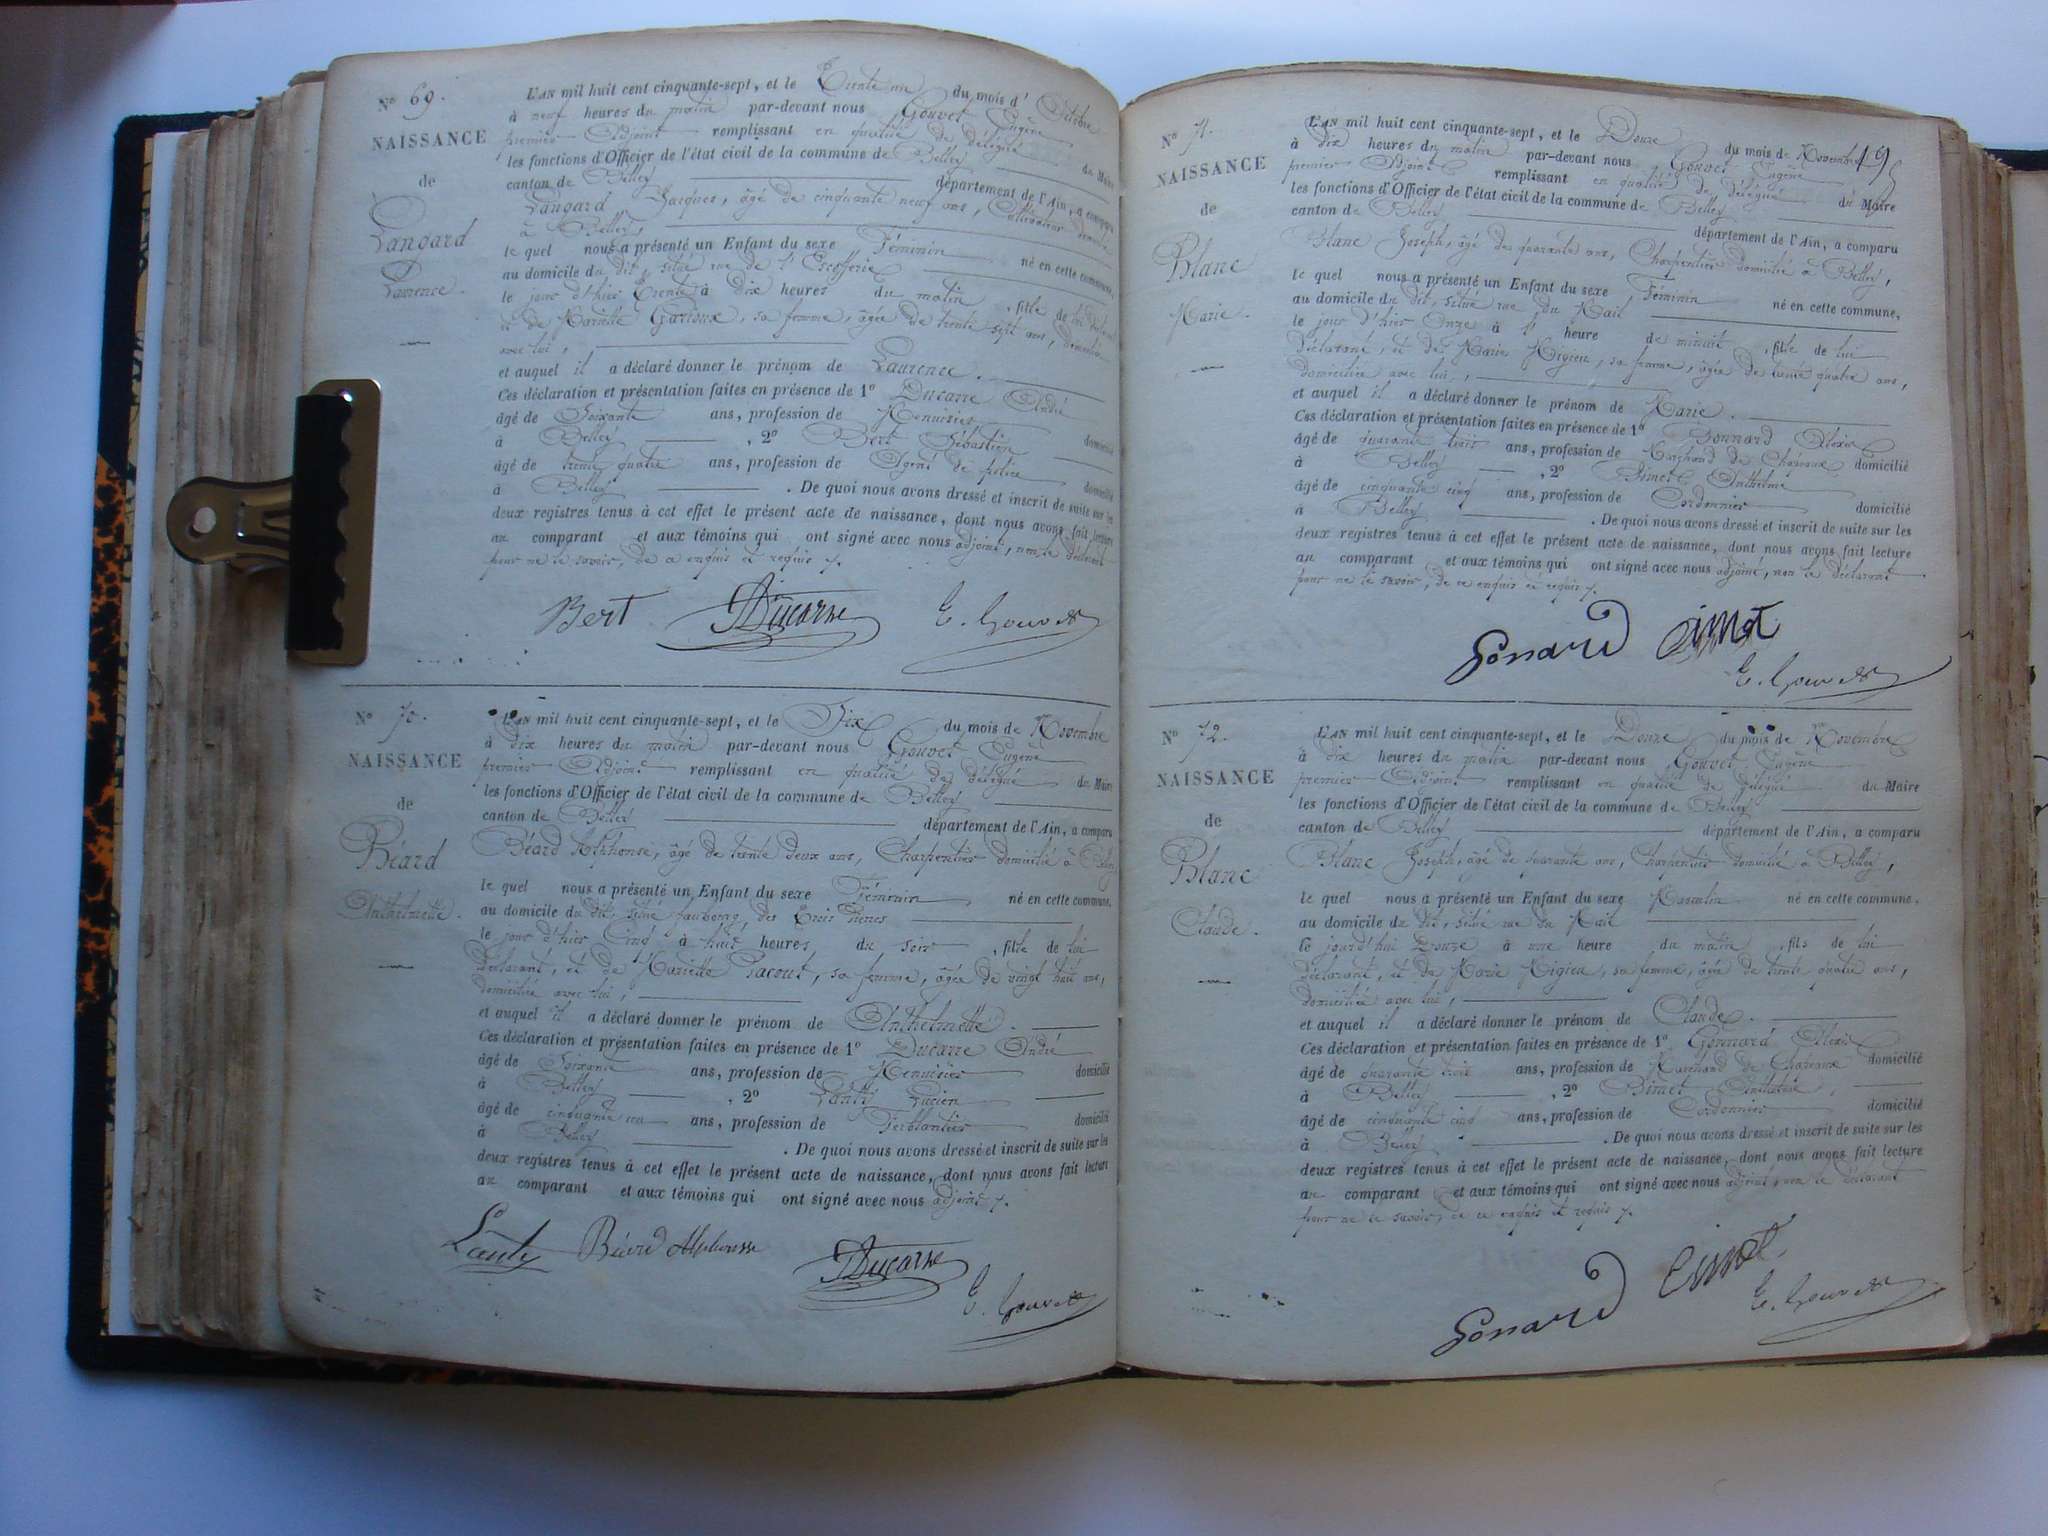 N° 69.
NAISSANCE
de
Langard
Laurence.
L'AN mil huit cent cinquante-sept, et le Trente un du mois d'Octobre
à neuf heures du matin par-devant nous Gouvet Eugène
premier Adjoint remplissant en qualité de délégué du Maire
les fonctions d'Officier de l'état civil de la commune de Belley
canton de Belley département de l'Ain, a comparu
Langard Jacques, âgé de cinquante neuf ans, Cultivateur
à Belley,
le quel nous a présenté un Enfant du sexe Féminin né en cette commune,
au domicile du dit, situé rue de l'Escofferie
le jour d'hier Trente à dix heures du matin, fille de lui
et de Mariette, sa femme, âgée de trente sept ans, domiciliée
avec lui,
et auquel il a déclaré donner le prénom de Laurence.
Ces déclaration et présentation faites en présence de 1° Ducarre André
âgé de Soixante ans, profession de Menuisier domicilié
à Belley, 2° Bert Sébastien
âgé de trente quatre ans, profession de Agent de police domicilié
à Belley. De quoi nous avons dressé et inscrit de suite sur les
deux registres tenus à cet effet le présent acte de naissance, dont nous avons fait lecture
au comparant et aux témoins qui ont signé avec nous adjoint, non le déclarant
pour ne le savoir, de ce enquis et requis ./.
Bert Ducarre E. Gouvet
N° 70.
NAISSANCE
de
Béard
Anthelmette.
L'AN mil huit cent cinquante-sept, et le Six du mois de Novembre
à dix heures du matin par-devant nous Gouvet Eugène
premier Adjoint remplissant en qualité de délégué du Maire
les fonctions d'Officier de l'état civil de la commune de Belley
canton de Belley département de l'Ain, a comparu
Béard Alphonse, âgé de trente deux ans, Charpentier domicilié à Belley
le quel nous a présenté un Enfant du sexe Féminin né en cette commune,
au domicile du dit, situé faubourg des Trois Pierres
le jour d'hier Cinq à huit heures, du soir, fille de lui
déclarant, et de Mariette Pacout, sa femme, âgée de vingt huit ans,
domiciliée avec lui,
et auquel il a déclaré donner le prénom de Anthelmette.
Ces déclaration et présentation faites en présence de 1° Ducarre André
âgé de Soixante ans, profession de Menuisier domicilié
à Belley, 2° Lanty Lucien
âgé de cinquante un ans, profession de Ferblantier domicilié
à Belley. De quoi nous avons dressé et inscrit de suite sur les
deux registres tenus à cet effet le présent acte de naissance, dont nous avons fait lecture
au comparant et aux témoins qui ont signé avec nous adjoint ./.
Lanty Béard Alphonse Ducarre
E. Gouvet
N° 71.
NAISSANCE
de
Blanc
Marie.
L'AN mil huit cent cinquante-sept, et le Douze du mois de Novembre
à dix heures du matin par-devant nous Gouvet Eugène
premier Adjoint remplissant en qualité de délégué du Maire
les fonctions d'Officier de l'état civil de la commune de Belley
canton de Belley département de l'Ain, a comparu
Blanc Joseph, âgé de quarante ans, Charpentier domicilié à Belley,
le quel nous a présenté un Enfant du sexe Féminin né en cette commune,
au domicile du dit, situé rue du Mail
le jour d'hier Onze à l'heure de minuit, fille de lui
déclarant, et de Marie Migieu, sa femme, âgée de trente quatre ans,
domiciliée avec lui,
et auquel il a déclaré donner le prénom de Marie.
Ces déclaration et présentation faites en présence de 1° Bonnard Alexis
âgé de quarante trois ans, profession de Marchand de Chevaux domicilié
à Belley, 2° Bimet Anthelme
âgé de cinquante cinq ans, profession de Cordonnier domicilié
à Belley. De quoi nous avons dressé et inscrit de suite sur les
deux registres tenus à cet effet le présent acte de naissance, dont nous avons fait lecture
au comparant et aux témoins qui ont signé avec nous adjoint, non le déclarant
pour ne le savoir, de ce enquis et requis ./.
Gonard
E. Gouvet
N° 72.
NAISSANCE
de
Blanc
Claude.
L'AN mil huit cent cinquante-sept, et le Douze du mois de Novembre
à dix heures du matin par-devant nous Gouvet Eugène
premier Adjoint remplissant en qualité de délégué du Maire
les fonctions d'Officier de l'état civil de la commune de Belley
canton de Belley département de l'Ain, a comparu
Blanc Joseph, âgé de quarante ans, Charpentier domicilié à Belley,
le quel nous a présenté un Enfant du sexe Masculin né en cette commune.
au domicile du dit, situé rue du Mail
le jourd'hui Douze à une heure du matin, fils de lui
déclarant, et de Marie Migieu, sa femme, âgée de trente quatre ans,
domiciliée avec lui,
et auquel il a déclaré donner le prénom de Claude.
Ces déclaration et présentation faites en présence de 1° Gonnard Alexis
âgé de quarante trois ans, profession de Marchand de Chevaux domicilié
à Belley, 2° Bimet Anthelme,
âgé de cinquante cinq ans, profession de Cordonnier domicilié
à Belley. De quoi nous avons dressé et inscrit de suite sur les
deux registres tenus à cet effet le présent acte de naissance, dont nous avons fait lecture
au comparant et aux témoins qui ont signé avec nous adjoint, non le déclarant
pour ne le savoir, de ce enquis et requis ./.
Gonard
E. Gouvet